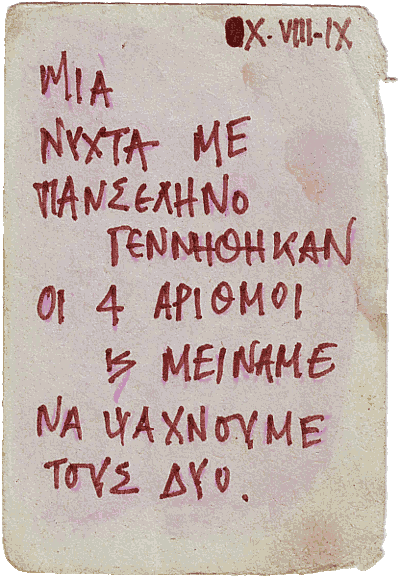 X·VIII-IX
ΜΙΑ
ΝΥΧΤΑ ΜΕ
ΠΑΝΣΕΛΗΝΟ
ΓΕΝΝΗΘΗΚΑΝ
ΟΙ 4 ΑΡΙΘΜΟΙ
ΚΙ ΜΕΙΝΑΜΕ
ΝΑ ΨΑΧΝΟΥΜΕ
ΤΟΥΣ ΔΥΟ.